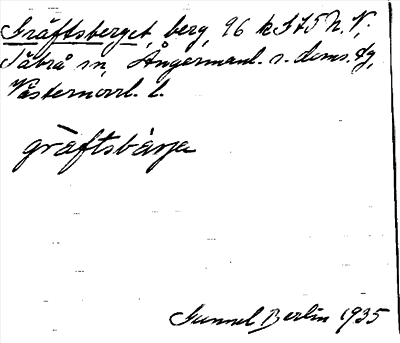 Gräftsberget, berg, 96 k 575 N.V.
Säbrå sn, Ångermanl. s. doms. dg,
Västernorrl. l.
gräftsbärje
Gunnel Berlin 1935